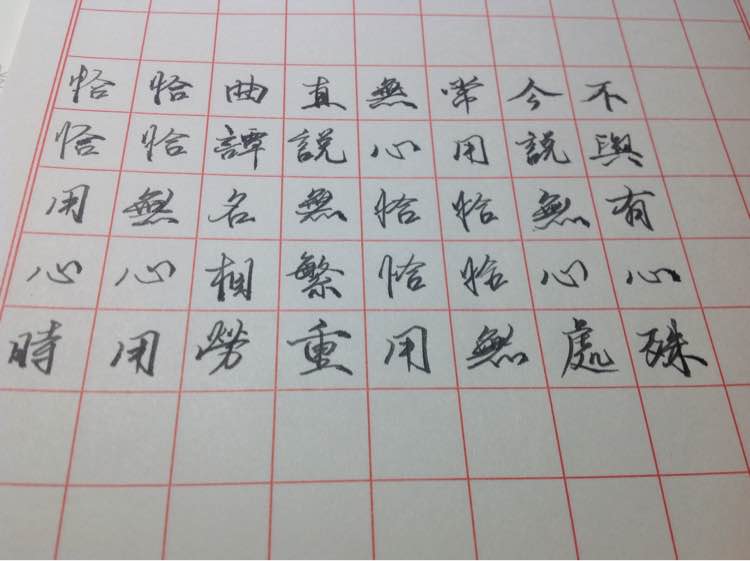 恰恰用心時
恰恰無心用
曲譚名相勞
直説無繁重
無心恰恰用
常用恰恰無
今説無心處
不與有心殊